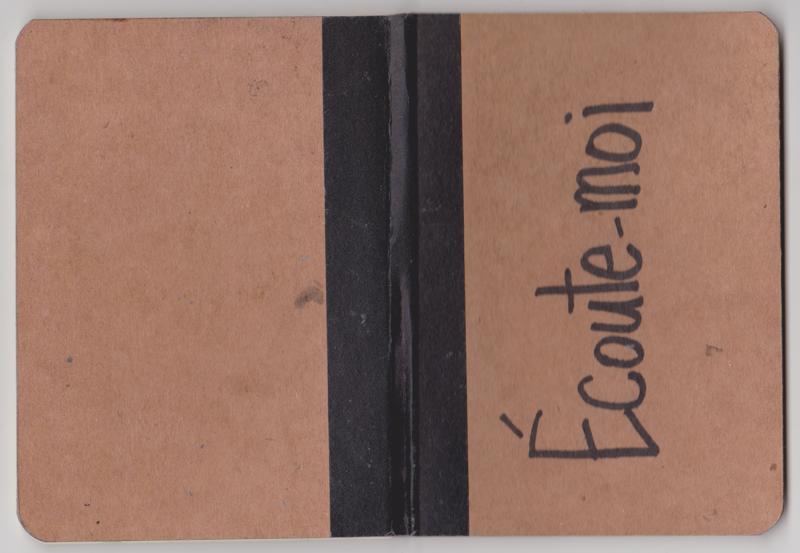 Écoute-moi